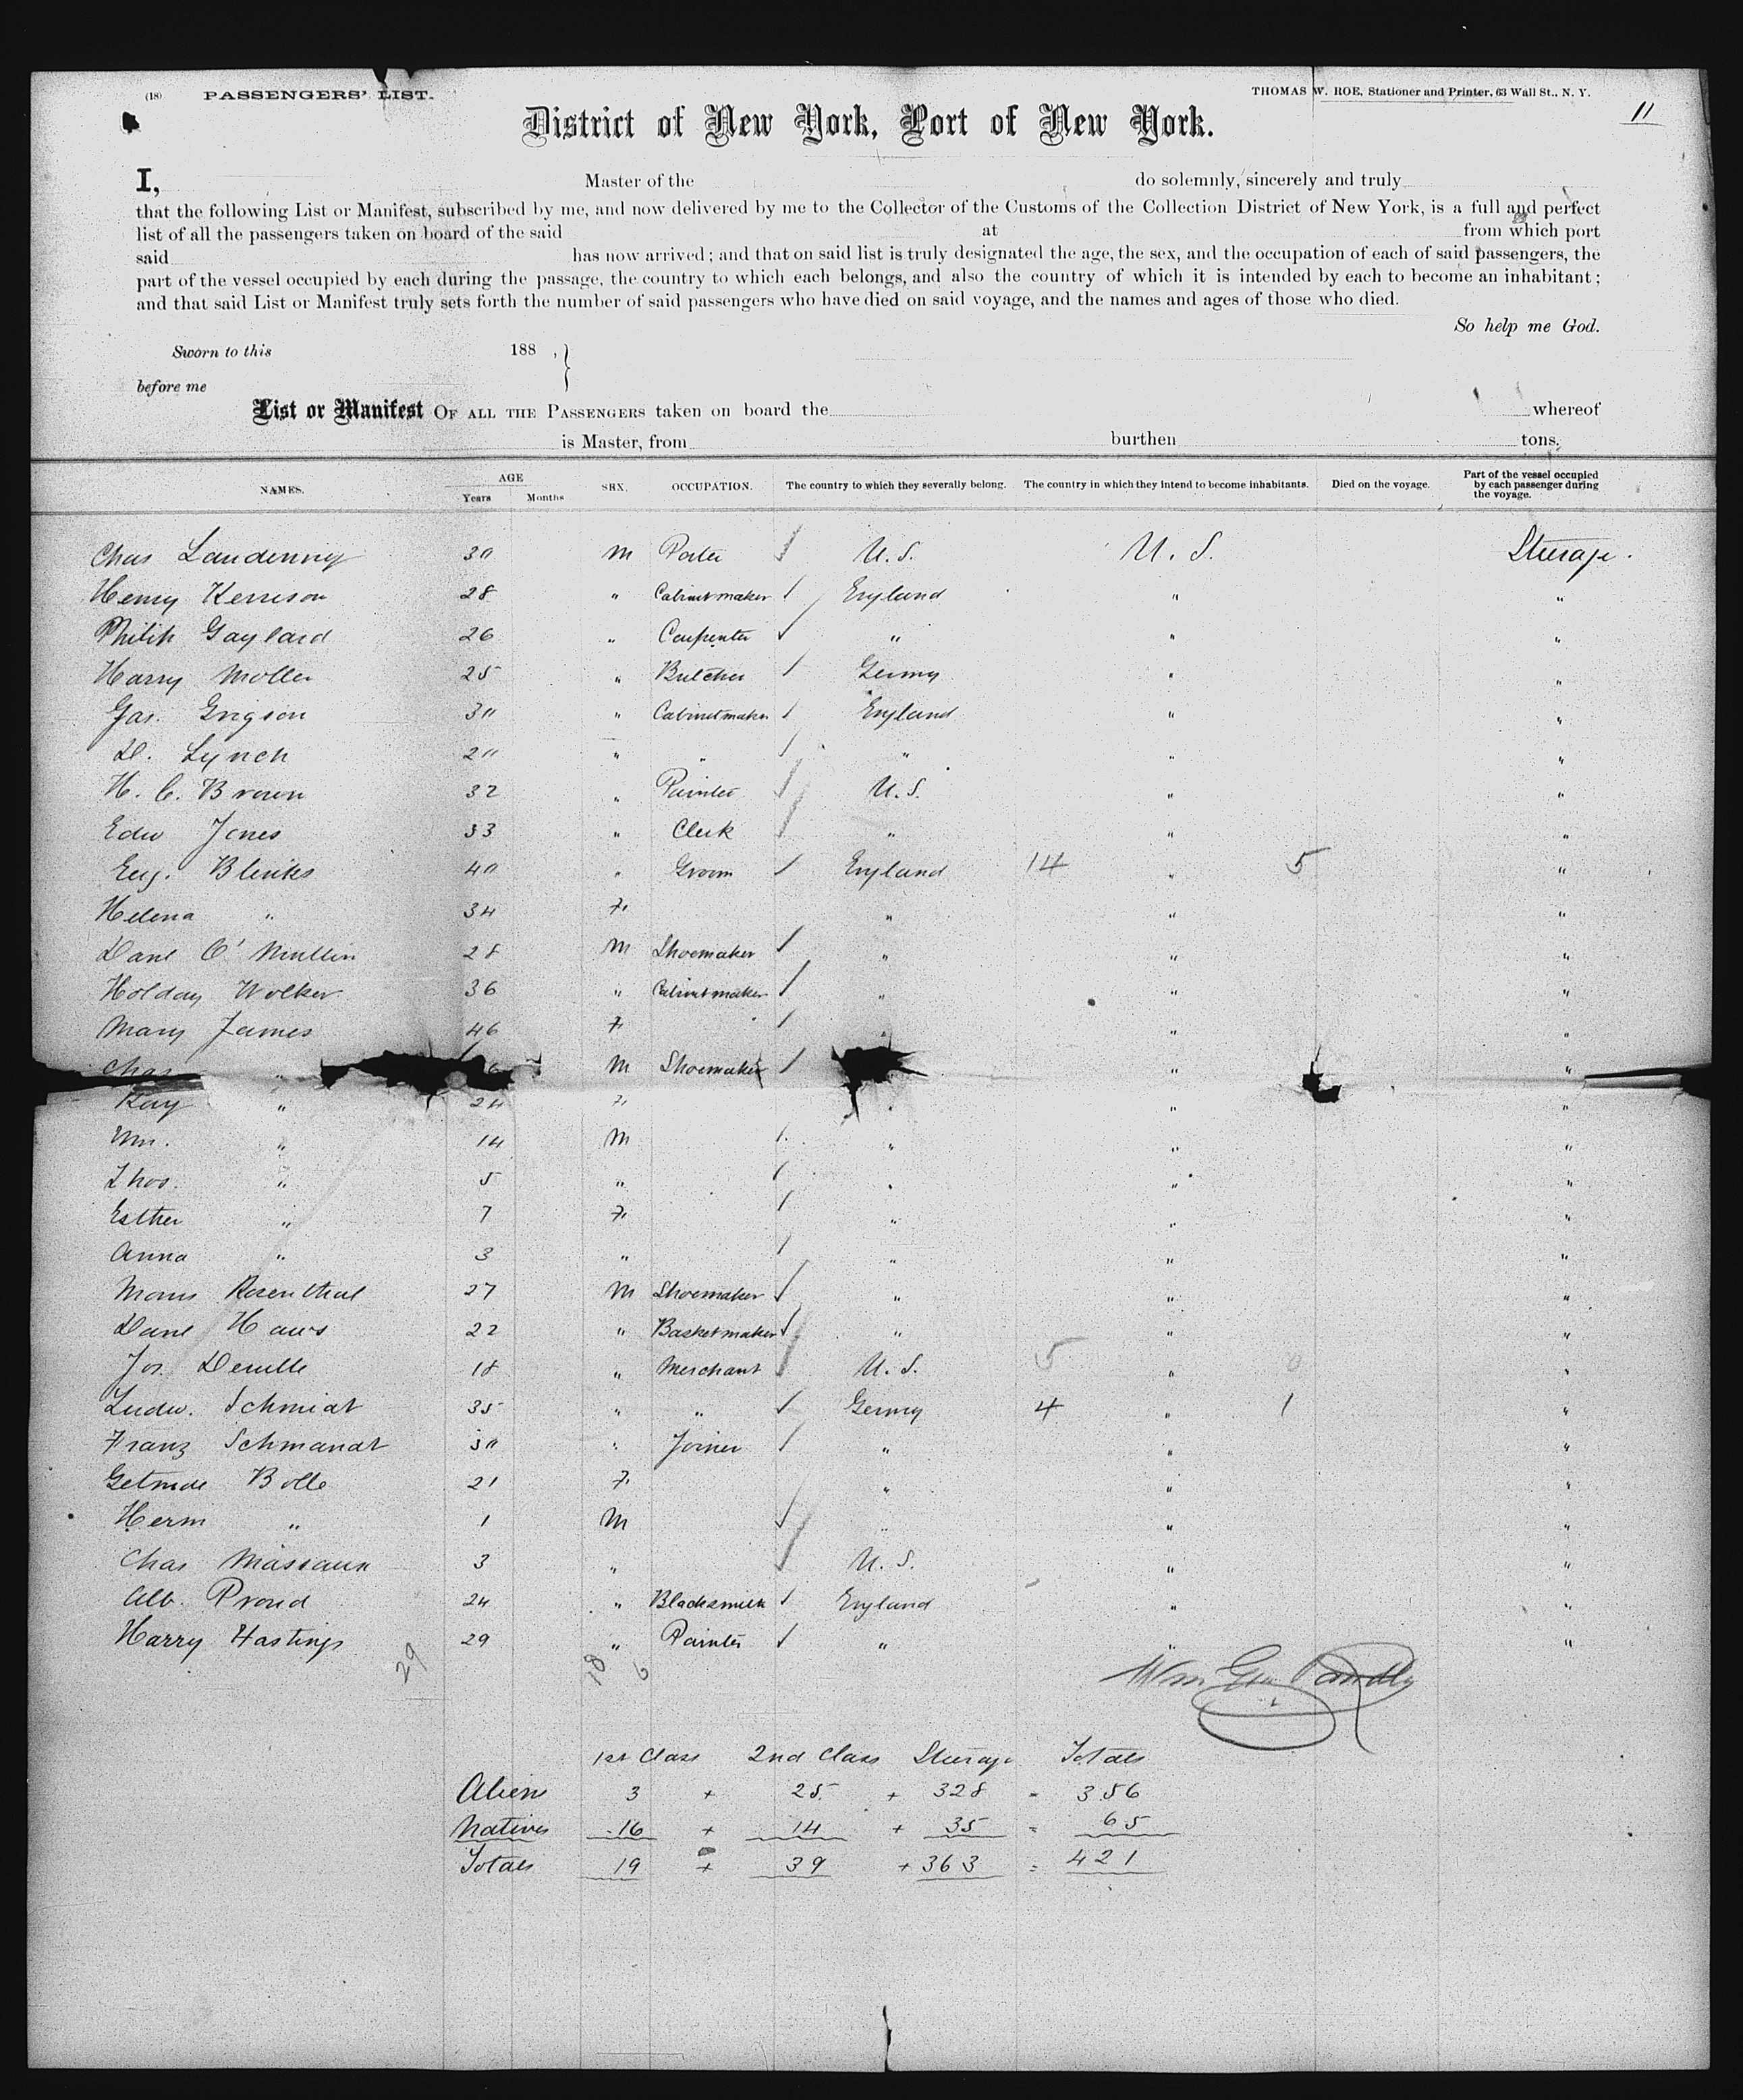 (18) PASSENGERS' LIST. THOMAS W. ROE, Stationer and Printer, 63 Wall St., N. Y.
11
District of New York, Port of New York.
I, Master of the do solemnly, sincerely and truly
that the following List or Manifest, subscribed by me, and now delivered by me to the Collector of the Customs of the Collection District of New York, is a full and perfect
list of all the passengers taken on board of the said at from which port
said has now arrived; and that on said list is truly designated the age, the sex, and the occupation of each of said passengers, the
part of the vessel occupied by each during the passage, the country to which each belongs, and also the country of which it is intended by each to become an inhabitant;
and that said List or Manifest truly sets forth the number of said passengers who have died on said voyage, and the names and ages of those who died.
So help me God.
Sworn to this 188 , }
before me
List or Manifest OF ALL THE PASSENGERS taken on board the whereof
is Master, from burthen tons.
NAMES. AGE Years Months SEX. OCCUPATION. The country to which they severally belong. The country in which they intend to become inhabitants. Died on the voyage. Part of the vessel occupied by each passenger during the voyage.
Chas 30 M Porter U.S. U.S. Steerage.
Henry Kerrison 28 " Cabinetmaker England " "
Philip Gaylard 26 " Carpenter " " "
Harry Moller 25 " Butcher Germy " "
Jas. Grigson 30 " Cabinetmaker England " "
D. Lynch 20 " " " " "
H. C. Brown 32 " Painter U.S. " "
Edw Jones 33 " Clerk " " "
Eug. Blinks 40 " Groom England 14 " 5 "
Helena " 34 F " " "
Danl O'Mullin 28 M Shoemaker " " "
Holday Wolker 36 " Cabinetmaker " " "
Mary James 46 F " " "
Chas " 6 M Shoemaker " "
Kay " 24 F " " "
Wm. " 14 M " " "
Thos. " 5 " " " "
Esther " 7 F " " "
Anna " 3 " " " "
Morris Rosenthal 27 M Shoemaker " " "
Danl Haws 22 " Basketmaker " " "
Jos. 18 " Merchant U.S. 5 " 0 "
Ludw. Schmidt 35 " " Germy 4 " 1 "
Franz Schmandt 30 " Joiner " " "
Getrude Bolle 21 F " " "
Herm " 1 M " " "
Chas 3 " U.S. " "
Alb. Proud 24 " Blacksmith England " "
Harry Hastings 29 " Painter " " "
29 18 6
1st Class 2nd Class Steerage Totals
Aliens 3 + 25 + 328 = 356
Natives 16 + 14 + 35 = 65
Totals 19 + 39 + 363 = 421